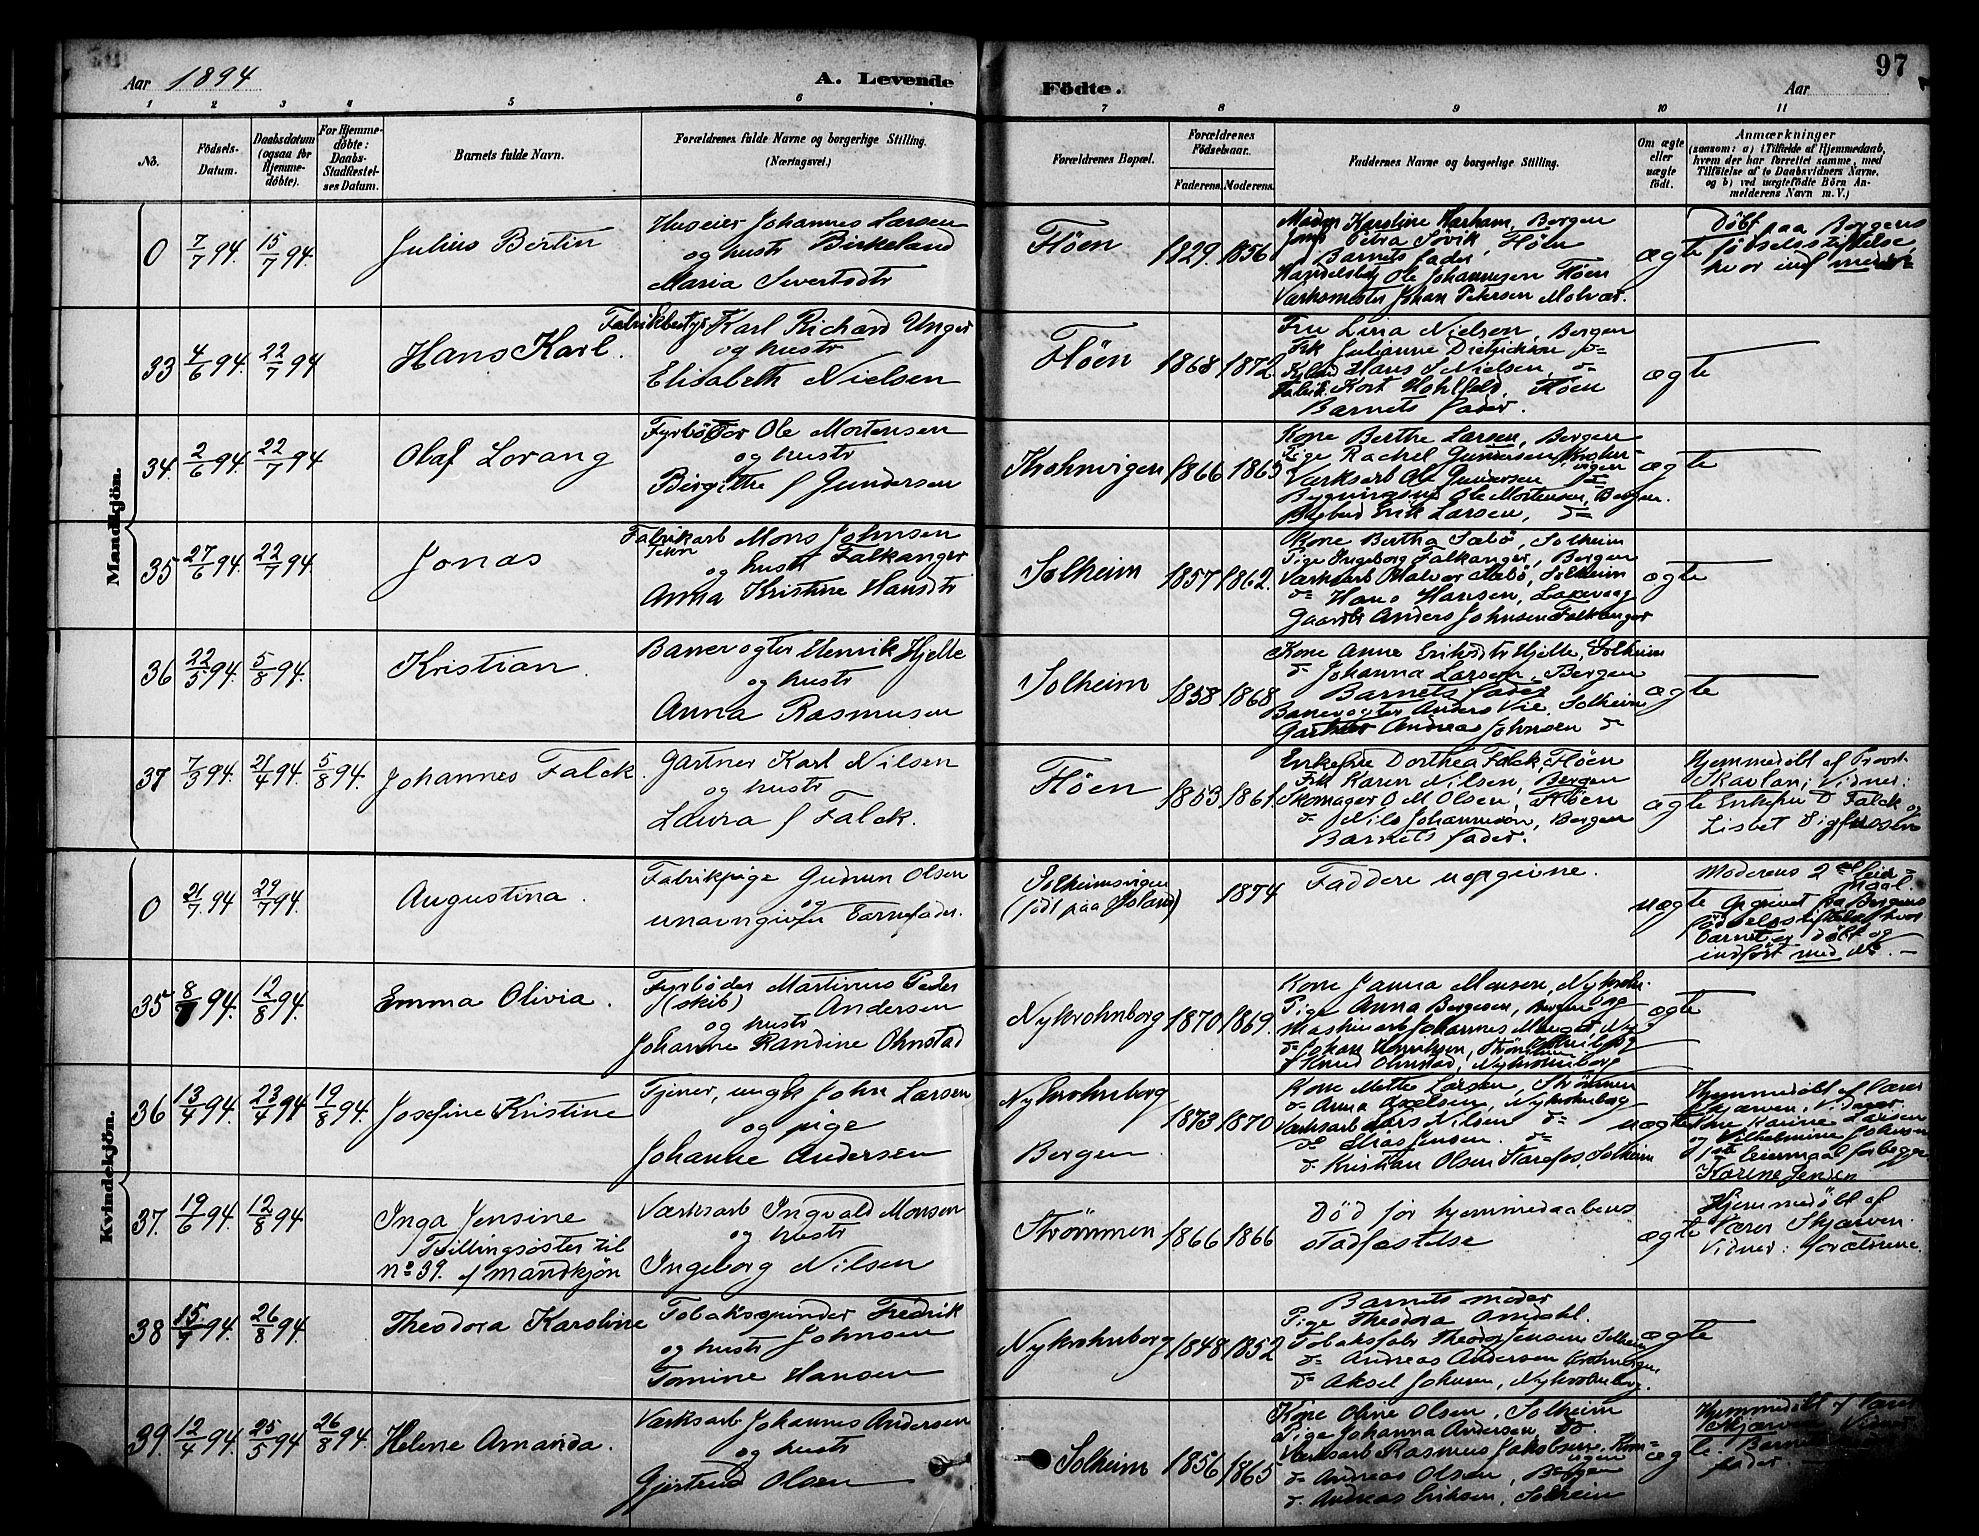 Aar 1894
A. Levende
Födte.
97
Aar
1 2 3 4 5 6 7 8 9 10 11
No.
Födsels-
Datum.
Daabsdatum
(ogsaa for
Hjemme-
döbte).
For Hjemme-
döbte:
Daabs-
Stadfæstel-
ses Datum.
Barnets fulde Navn.
Forældrenes fulde Navne og borgerlige Stilling.
(Næringsvei.)
Forældrenes Bopæl.
Forældrenes
Födselsaar.
Faderens. Moderens.
Faddernes Navne og borgerlige Stilling.
Om ægte
eller
uægte
födt.
Anmærkninger
(saasom: a) i Tilfælde af Hjemmedaab,
hvem der har forrettet samme, med
Tilföielse af to Daabsvidners Navne,
og b) ved uægtefödte Börn An-
melderens Navn m. V.)
Mandkjön.
0 7/7 94. 15/7 94. Julius Bertin
Huseier Johannes Larsen
og hustr Birkeland
Maria Sivertsdtr
Flöen 1829. 1856
Karoline Harham, Bergen
Petra Sövik Flöen
Barnets fader
Ole Johannesen Flöen
Værksmester Johan Petersen Molvær.
ægte
Döbt paa Bergens
födselsstiftelse,
hvor indf
33 4/6 94. 22/7 94 Hans Karl.
Fabrikbestyr Karl Richard Unger
og hustr
Elisabeth Nielsen
Flöen 1868 1872
Fru Lina Nielsen, Bergen
Frk Julianne Dietrichson do
Hans S Nielsen, do
Kort Hohlfeld, Flöen
Barnets fader.
ægte
34. 2/6 94. 22/7 94 Olaf Lorang
Fyrböter Ole Mortensen
og hustr
Birgithe J Gundersen
Krohnvigen 1866 1865
Kone Berthe Larsen, Bergen
Pige Rachel Gundersen
Værksarb Ole Gundersen do
Ole Mortensen, Bergen.
Erik Larsen, do
ægte
35 27/6 94. 22/7 94. Jonas
Fabrikarb Mons Johnsen
og hustr Falkanger
Anna Kristine Hansdtr
Solheim 1857 1862.
Kone Bertha Sæbö, Solheim
Pige Ingeborg Falkanger, Bergen
Værksarb Halvor Sæbö, Solheim
do Hans Hansen, Laxevaag
Gaardbr Anders Johnsen Falkanger
ægte
36 22/5 94. 5/8 94. Kristian.
Banevogter Henrik Hjelle
og hustr
Anna Rasmusen
Solheim 1858 1868
Kone Anne Eriksdtr Hjelle, Solheim
do Johanna Larsen, Bergen
Barnets fader
Banevogter Anders Vie, Solheim
Gartner Andreas Johnsen do
ægte
37 7/3 94. 21/4 94. 5/8 94. Johannes Falck.
Gartner Karl Nilsen
og hustr
Laura J Falck.
Flöen 1853 1861.
Enkefru Dorthea Falck, Flöen
Frk Karen Nilsen, Bergen
Skomager O M Olsen, Flöen
do Nils Johannesen, Bergen
Barnets fader.
ægte
Hjemmedöbt af Provst
Skavlan; Vidner:
Enkefru D Falck og
Lisbet Sigfussen
Kvindekjön.
0 21/7 94 29/7 94. Augustina.
Fabrikpige Gudrun Olsen
og
unavngiven Barnefader.
Solheimsvigen
(födt paa) 1874
Faddere uopgivne.
uægte
Moderens 2det leier-
maal.
Opgivet fra Bergens
födselsstiftelse, hvor
barnet er döbt og
indfört med No. —
35 8/7 94. 12/8 94. Emma Olivia.
Fyrböder Martinus Peder
(skib) Andersen
og hustr
Johanne Randine Ohnstad
Nykrohnborg 1870 1869.
Kone Janna Monsen, Nykrohn-
borg
Pige Anna Bergesen, Bergen
Maskinarb Johannes
do Johan Henriksen, Strömmen
Knud Ohnstad, Nykrohnborg
ægte
36 13/4 94. 23/4 94 19/8 94. Josefine Kristine
Tjener, ungk John Larsen
og pige
Johanne Andersen
Nykrohnborg
Bergen 1873 1870
Kone Mette Larsen, Strömmen
do Anna Axelsen, Nykrohnborg
Værksarb Lars Nilsen do
do Elias Jensen. do
do Kristian Olsen Storefos, Solheim
uægte
Hjemmedöbt af Lærer
Skjærven, Vidner:
Karine Larsen
og Vilhelmine Johnsen
1ste leiermaal for begge
Karine Jensen
37. 19/6 94. 12/8 94 Inga Jensine
Tvillingsöster til
no 39. af mandkjön
Værksarb Ingvald Monsen
og hustr
Ingeborg Nilsen
Strömmen 1866 1866
Död för hjemmedaabens
stadfæstelse
ægte
Hjemmedöbt af
Lærer Skjærven.
Vidner: forældrene.
38 15/7 94. 26/8 94. Theodora Karoline
Tobaksspinder Fredrik
og hustr Johnsen
Tomine Hansen
Nykrohnborg 1848 1852
Barnets moder
Pige Theodora Omdahl.
Tobaksfabr Theodor Jensen Solheim
do Andreas Andersen
do Aksel Johnsen, Nykrohnborg.
ægte
39. 12/4 94. 25/5 94 26/8 94. Helene Amanda.
Værksarb Johannes Andersen
og hustr
Gjertrud Olsen
Solheim 1856 1865
Kone Oline Olsen, Solheim
Pige Johanna Andersen, do
Værksarb Rasmus Jakobsen,
do Andreas Olsen, Bergen
do Andreas Eriksen, Solheim
ægte
Hjemmedöbt af Lærer
Skjærven Vidner
Barnets
fader